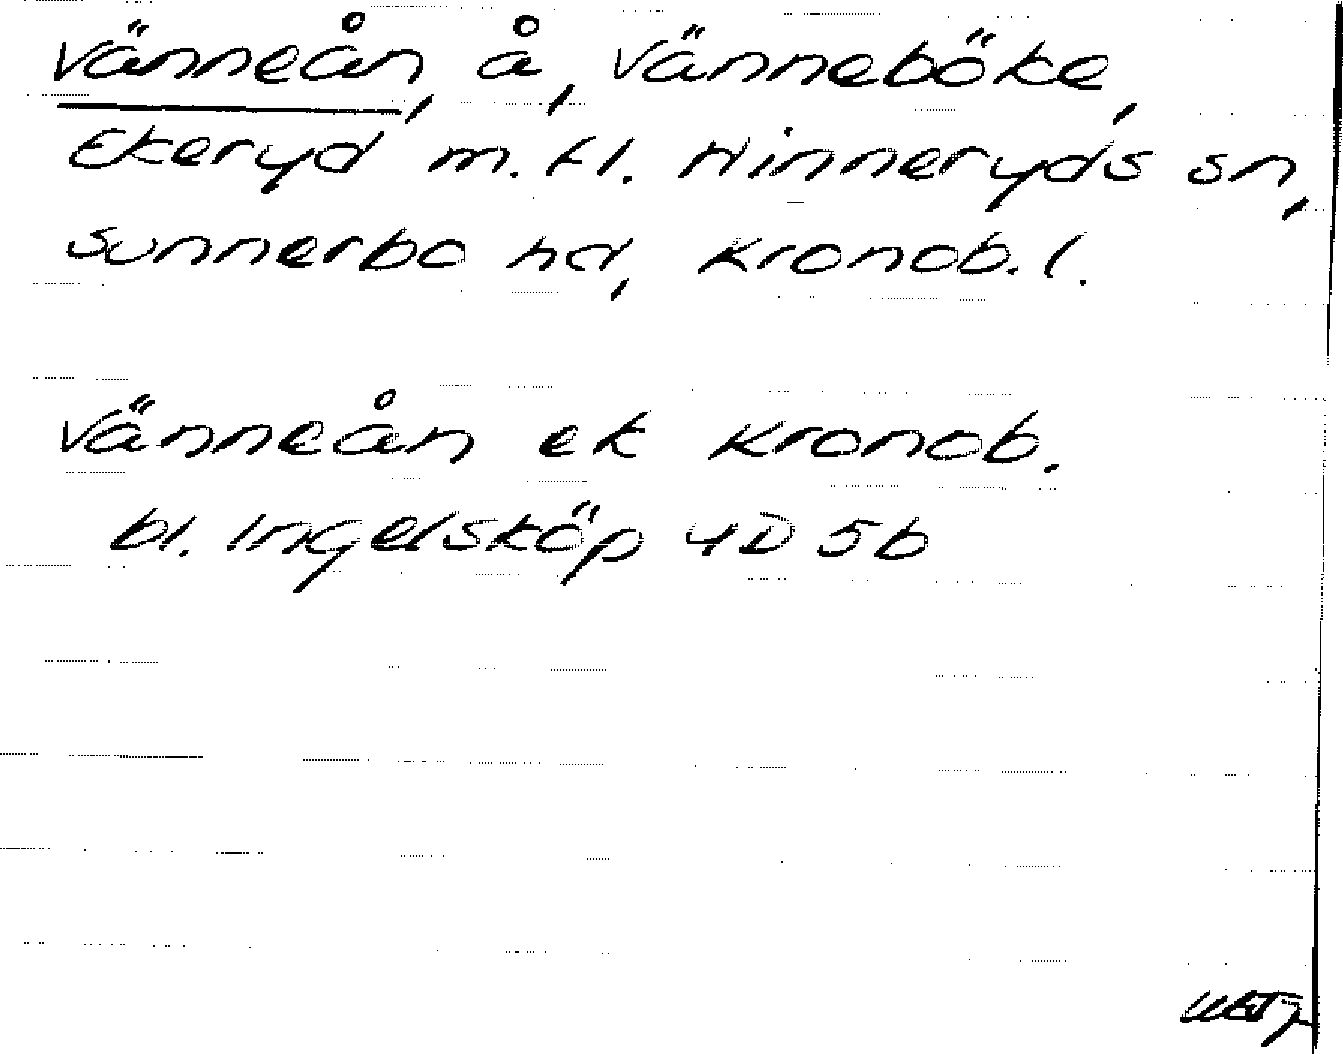 Vänneån, å, Vänneböke,
Ekeryd m.fl. Hinneryds sn,
Sunnerbo hd, Kronob. l.
Vänneån ek Kronob.
bl. Ingelsköp 4D 5b